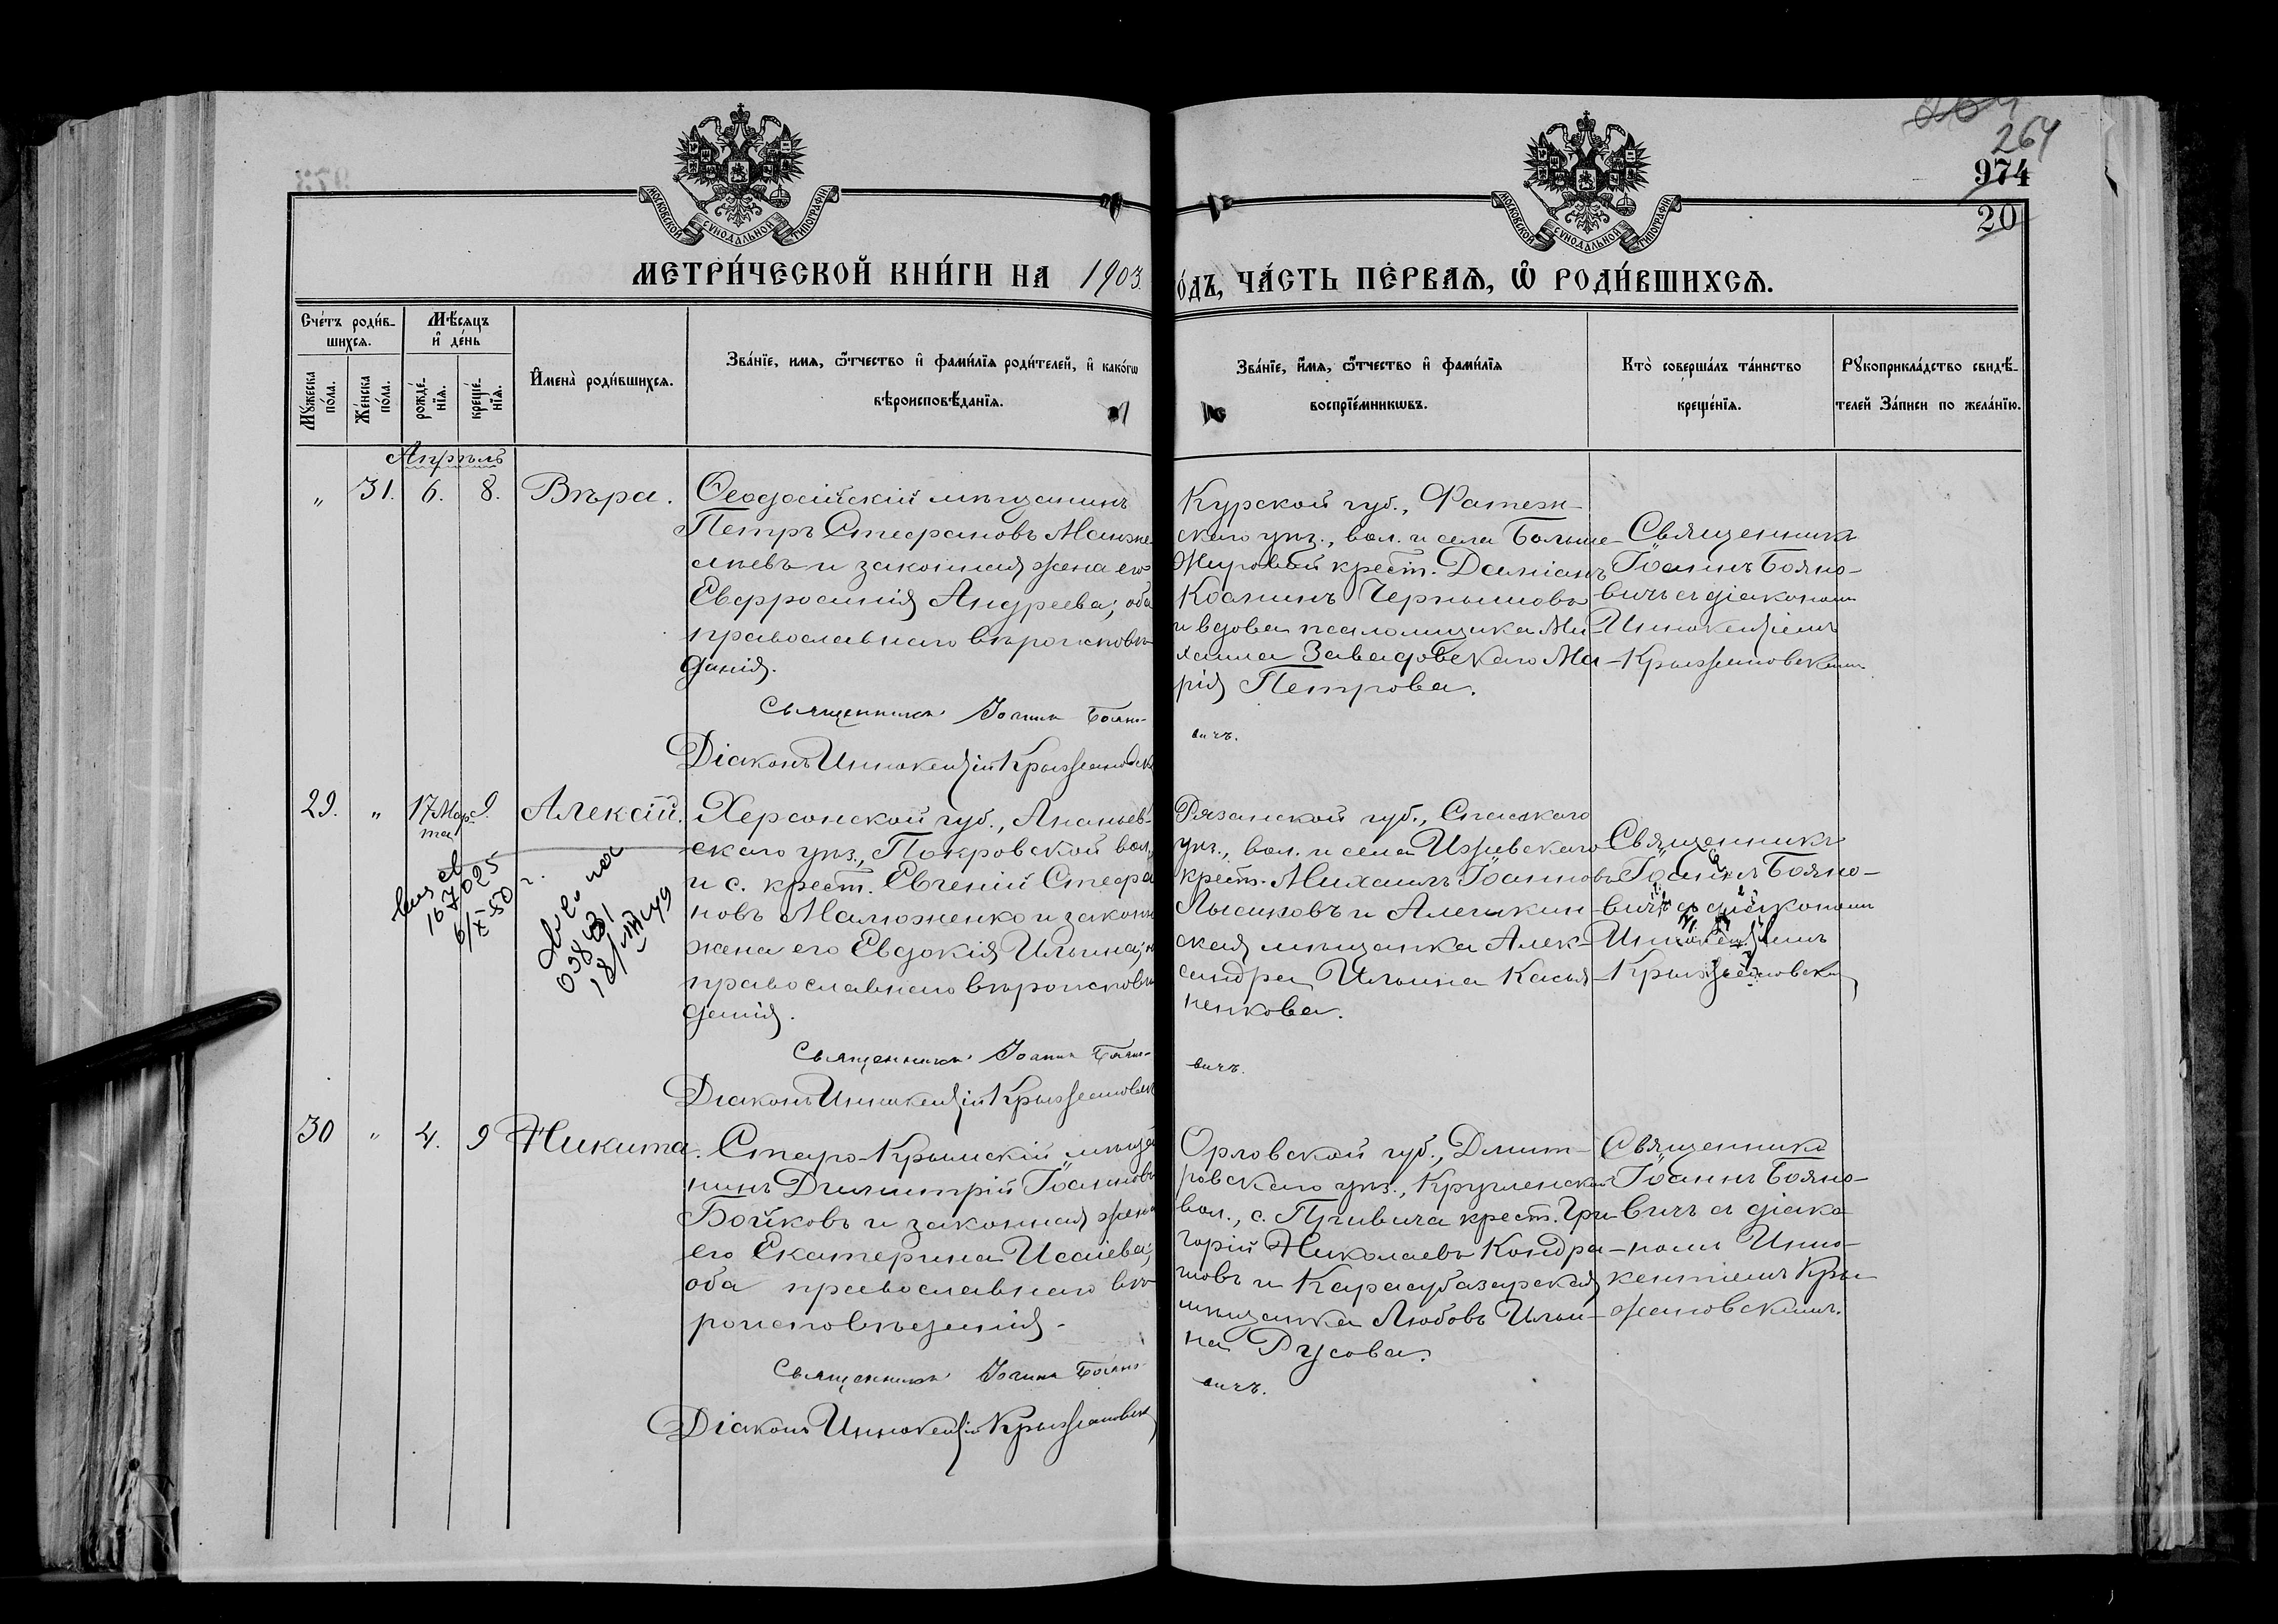 264
974
20
МОСКОВСКОЙ СѴНОДАЛЬНОЙ ТИПОГРАФІИ
МОСКОВСКОЙ СѴНОДАЛЬНОЙ ТИПОГРАФІИ
МЕТРИ́ЧЕСКОЙ КНИ́ГИ НА 1903 О́ДЪ, ЧА́СТЬ ПЕ́РВАѦ, Ѿ РОДИ́ВШИХСѦ.
Сче́тъ роди́в-
шихсѧ.
Мꙋжеска
по́ла.
Же́нска
по́ла.
Мѣ́сяцъ
и҆ де́нь
рожде́-
нїѧ.
креще́-
нїѧ.
И҆мена̀ роди́вшихсѧ.
Зва́нїе, имѧ, ѻ҆́тчество и҆ фами́лїѧ роди́телей, и҆ како́гѡ
вѣроисповѣ́данїѧ.
Зва́нїе, и҆́мѧ, ѻ҆́тчество и҆ фами́лїѧ
воспрїе́мникѡвъ.
Кто̀ соверша́лъ та́инство
креще́нїѧ.
Рꙋкоприкла́дство свидѣ́-
телей За́писи по жела́нїю.
Апрѣль
„ 31. 6. 8. Вѣра.
Ѳеодосійскій мѣщанинъ
Петръ Стефановъ Манже-
лѣевъ и законная жена его
Евфросинія Андреева; оба
православнаго вѣроисповѣ-
данія.
Священникъ Іоаннъ Бояно-
вичъ.
Діаконъ Иннокентій Крыжановск
Курской губ., Фатеж-
скаго уѣз., вол. и села Больше-
Жировой крест. Даміанъ
Косминъ Чернышовъ
и вдова псаломщика Ми-
хаила Завадовскаго Ма-
рія Петрова.
Священникъ
Іоаннъ Бояно-
вичъ съ діакономъ
Иннокентіемъ
Крыжановскимъ
29. „ 17 Мар-
та 9. Алексій.
Херсонской губ., Ананьев-
скаго уѣз., Покровской вол.,
и с. крест. Евгеній Стефа
новъ Малюженко и законн
жена его Евдокія Ильина;
православнаго вѣроисповѣ
данія.
Священникъ Іоаннъ Бояно-
вичъ.
Діаконъ Иннокентій Крыжановск
167025
03831
Рязанской губ., Спасскаго
уѣз., вол. и села Ижевскаго
крест. Михаилъ Іоанновъ
Лысиковъ и Алешкин-
ская мѣщанка Алек-
сандра Ильина Касья-
ненкова.
Священникъ
Іоаннъ Бояно-
вичъ съ діакономъ
Иннокентіемъ
Крыжановски
30 „ 4. 9 Никита.
Старо-Крымскій мѣща
нинъ Димитрій Іоанновъ
Бойковъ и законная жена
его Екатерина Исаіева;
оба православнаго вѣ-
роисповѣданія.
Священникъ Іоаннъ Бояно-
вичъ.
Діаконъ Иннокентій Крыжановск
Орловской губ., Дмит-
ровскаго уѣз., Кругленской
вол., с. крест. Гри-
горій Николаевъ Кондра-
шовъ и Карасубазарская
мѣщанка Любовь Ильи-
на Русова.
Священникъ
Іоаннъ Бояно-
вичъ съ діако-
номъ Инно-
кентіемъ Кры-
жановскимъ.